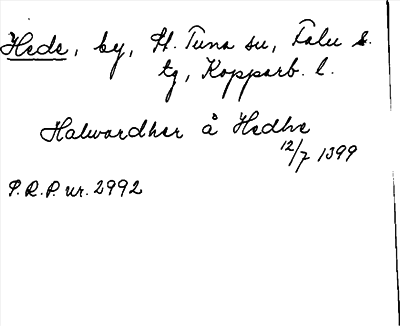 Hede, by, St. Tuna sn, Falu s.
tg, Kopparb. l.
Halwardher å Hedhe
12/7 1399
P.R.P. nr. 2992